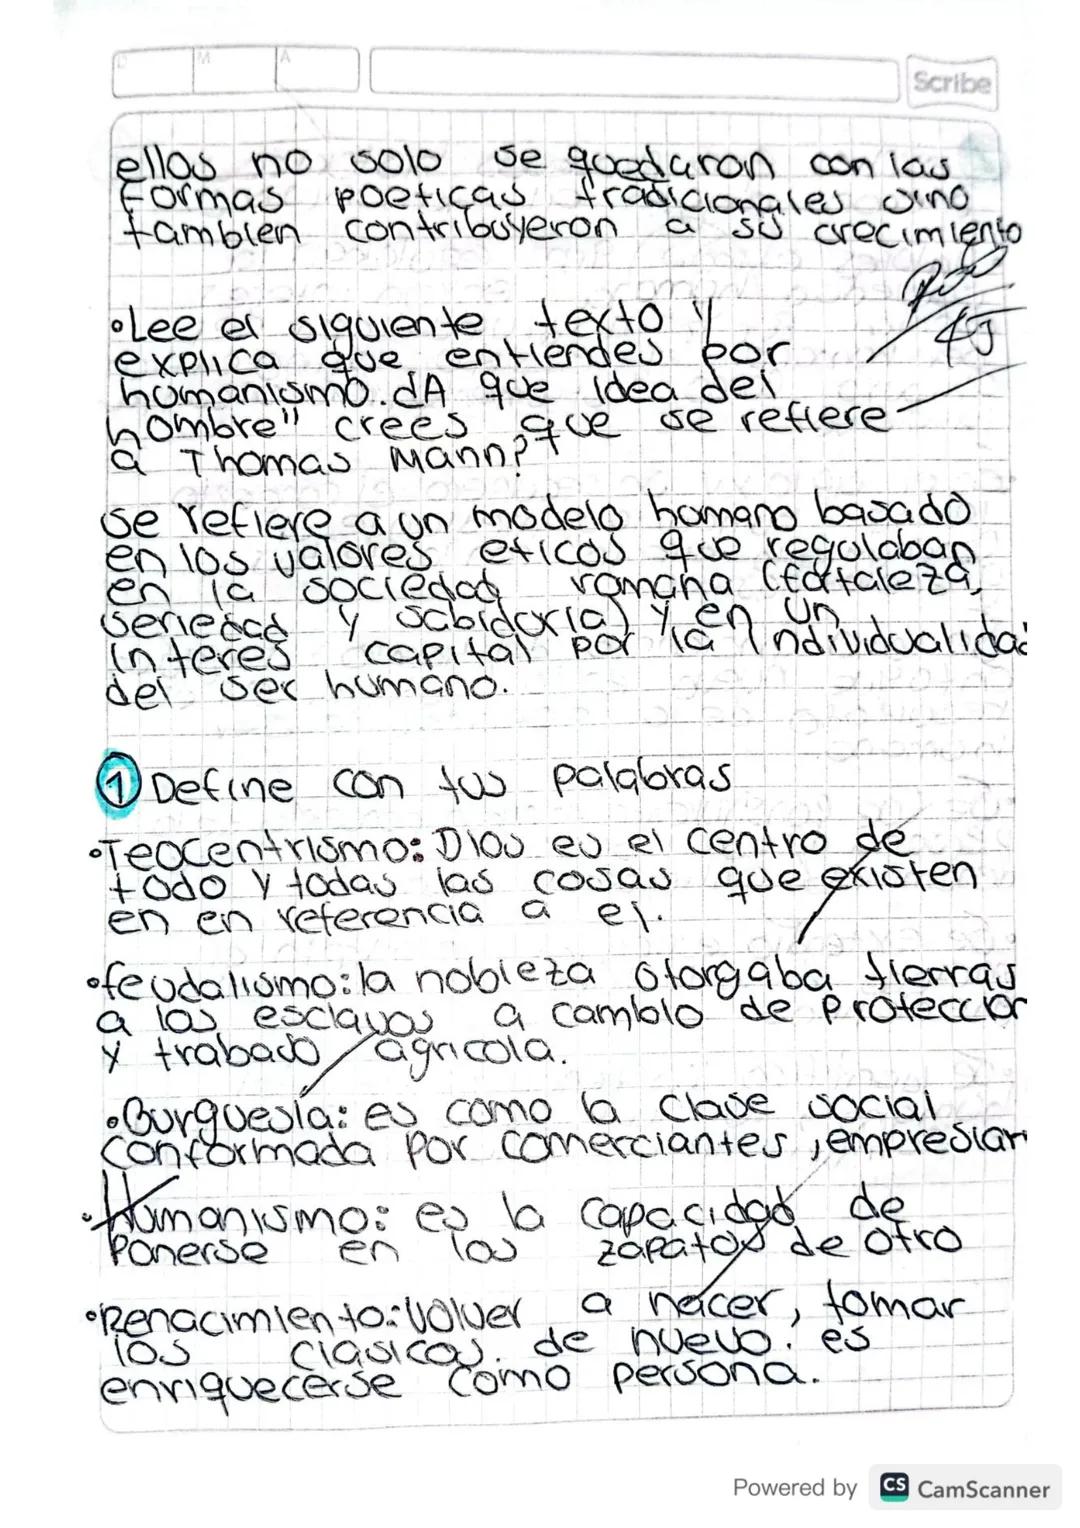 D M A
Scribe
ellos no solo se quedaron con las
formas poeticas tradicionales sino
tambien contribuyeron a su crecimiento
•Lee el siguiente texto y
explica que entiendes por
humanismo. ¿A que idea del
hombre" crees que se refiere
a Thomas Mann?
45
se refiere a un modelo humano basado
en los valores eticos que regulaban
en la sociedad romana (fortaleza,
seriedad y sabidoria) y en un
interes capital por la individualidad
del ser humano.
1 Define con tus palabras
•Teocentrismo: Dios es el centro de
todo y todas las cosas que existen
en en referencia a el.
•feudalismo: la nobleza otorgaba tierras
a los esclavos a cambio de proteccion
y trabajo agricola.
•Burguesia: es como la clase social
conformada por comerciantes, empresiar
•Humanismo: es la capacidad de
ponerse en los zapatos de otro
•Renacimiento: Volver a nacer, tomar
los clasicos. de nuevo. es
enriquecerse como persona.
Powered by CS CamScanner